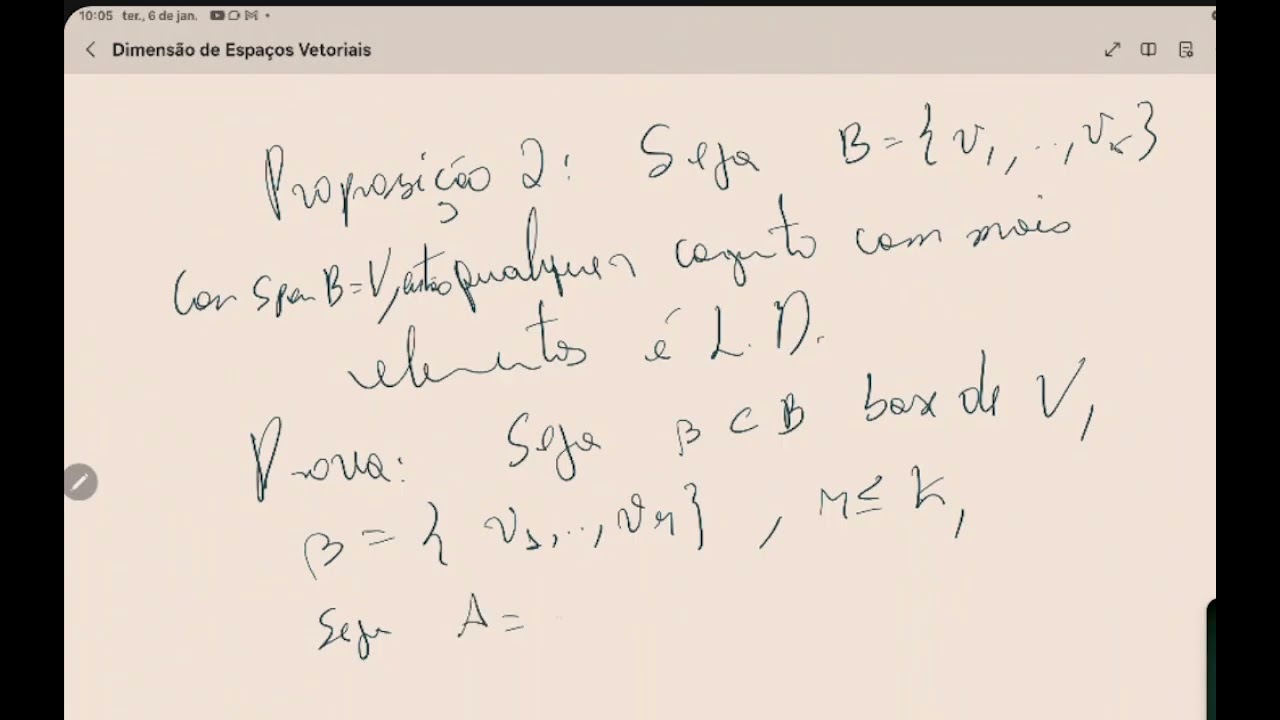 10:05 ter., 6 de jan.
Dimensão de Espaços Vetoriais
Proposição 2: Seja B = {v₁, ..., vₖ}
com Span B = V, então qualquer conjunto com mais
elementos é L.D.
Prova: Seja β ⊂ B base de V,
β = { v₁, ..., vᵣ} , r ≤ k,
Seja A =